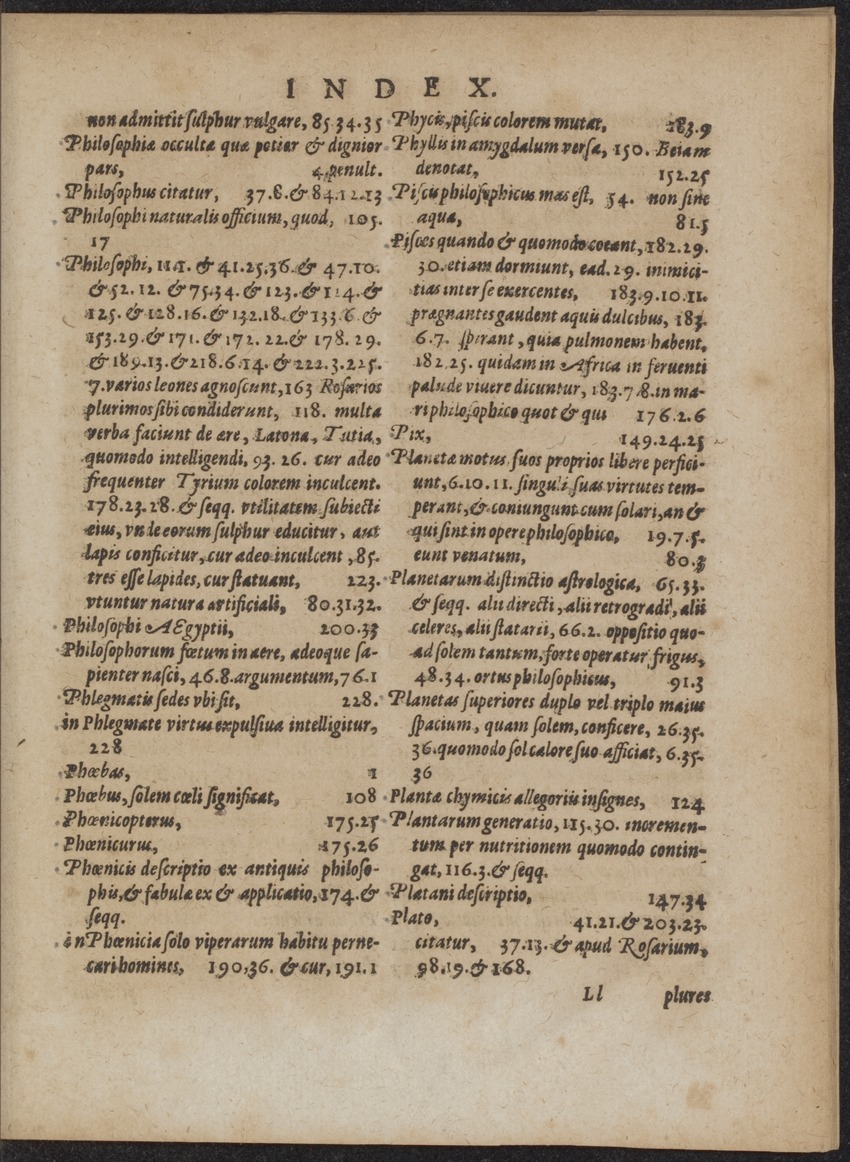 INDEX.
non admittit sulphur vulgare, 85.34.35
Philosophiæ occultæ quæ potior & dignior
pars, 4. penult.
Philosophus citatur, 37.8.& 84.12.13
Philosophi naturalis officium, quod, 105.
17
Philosophi, 111. & 41.25.36.& 47.10.
& 52. 12. & 75.34. & 123. & 124. &
125. & 128.16. & 132.18. & 133.6 &
153.29.& 171. & 172. 22.& 178. 29.
& 189.13.& 218.6.14. & 222.3.225.
7.varios leones agnoscunt,163 Rosarios
plurimos sibi condiderunt, 118. multa
verba faciunt de ære, Latona, Tutia,
quomodo intelligendi, 93. 26. cur adeo
frequenter Tyrium colorem inculcent.
178.23.28. & seqq. vtilitatem subiecti
eius, vnde eorum sulphur educitur, aut
lapis conficitur, cur adeo inculcent, 85.
tres esse lapides, cur statuant, 223.
vtuntur natura artificiali, 80.31.32.
Philosophi Ægyptii, 200.33
Philosophorum fœtum in aere, adeoque sa-
pienter nasci, 46.8. argumentum, 76.1
Phlegmatis sedes vbi sit, 228.
in Phlegmate virtus expulsiua intelligitur,
228
Phœbas, 1
Phœbus, solem cœli significat, 108
Phœnicopterus, 175.25
Phœnicurus, 175.26
Phœnicis descriptio ex antiquis philoso-
phis, & fabula ex & applicatio, 174. &
seqq.
in Phœnicia solo viperarum habitu perne-
cari homines, 190.36. & cur, 191.1
Phycis, piscis colorem mutat, 183.9
Phyllis in amygdalum versa, 150. Beiam
denotat, 152.25
Piscis philosophicus mas est, 54. non sine
aqua, 81.5
Pisces quando & quomodo coeant, 182.29.
30. etiam dormiunt, ead. 29. inimici-
tias inter se exercentes, 183.9.10.11.
prægnantes gaudent aquis dulcibus, 183.
6.7. spirant, quia pulmonem habent,
182.25. quidam in Africa in feruenti
palude viuere dicuntur, 183.7.8. in ma-
ri philosophico quot & qui 176.2.6
Pix, 149.24.25
Planetæ motus suos proprios libere perfici-
unt, 6.10.11. singuli suas virtutes tem-
perant, & coniungunt cum solari, an &
qui sint in opere philosophico, 19.7.5.
eunt venatum, 80.3
Planetarum distinctio astrologica, 65.33.
& seqq. alii directi, alii retrogradi, alii
celeres, alii statarii, 66.2. oppositio quo-
ad solem tantum, forte operatur frigus,
48.34. ortus philosophicus, 91.3
Planetas superiores duplo vel triplo maius
spacium, quam solem, conficere, 26.35.
36. quomodo sol calore suo afficiat, 6.35.
36
Plantæ chymicis allegoriis insignes, 124
Plantarum generatio, 115.30. incremen-
tum per nutritionem quomodo contin-
gat, 116.3. & seqq.
Platani descriptio, 147.34
Plato, 41.21. & 203.23.
citatur, 37.13. & apud Rosarium,
98.19. & 168.
Ll plures